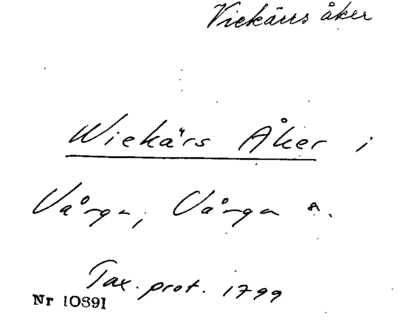 Vickärrs åker
Wickärs Åker i
Vånga, Vånga s.
Tax. prot. 1799
Nr 10891